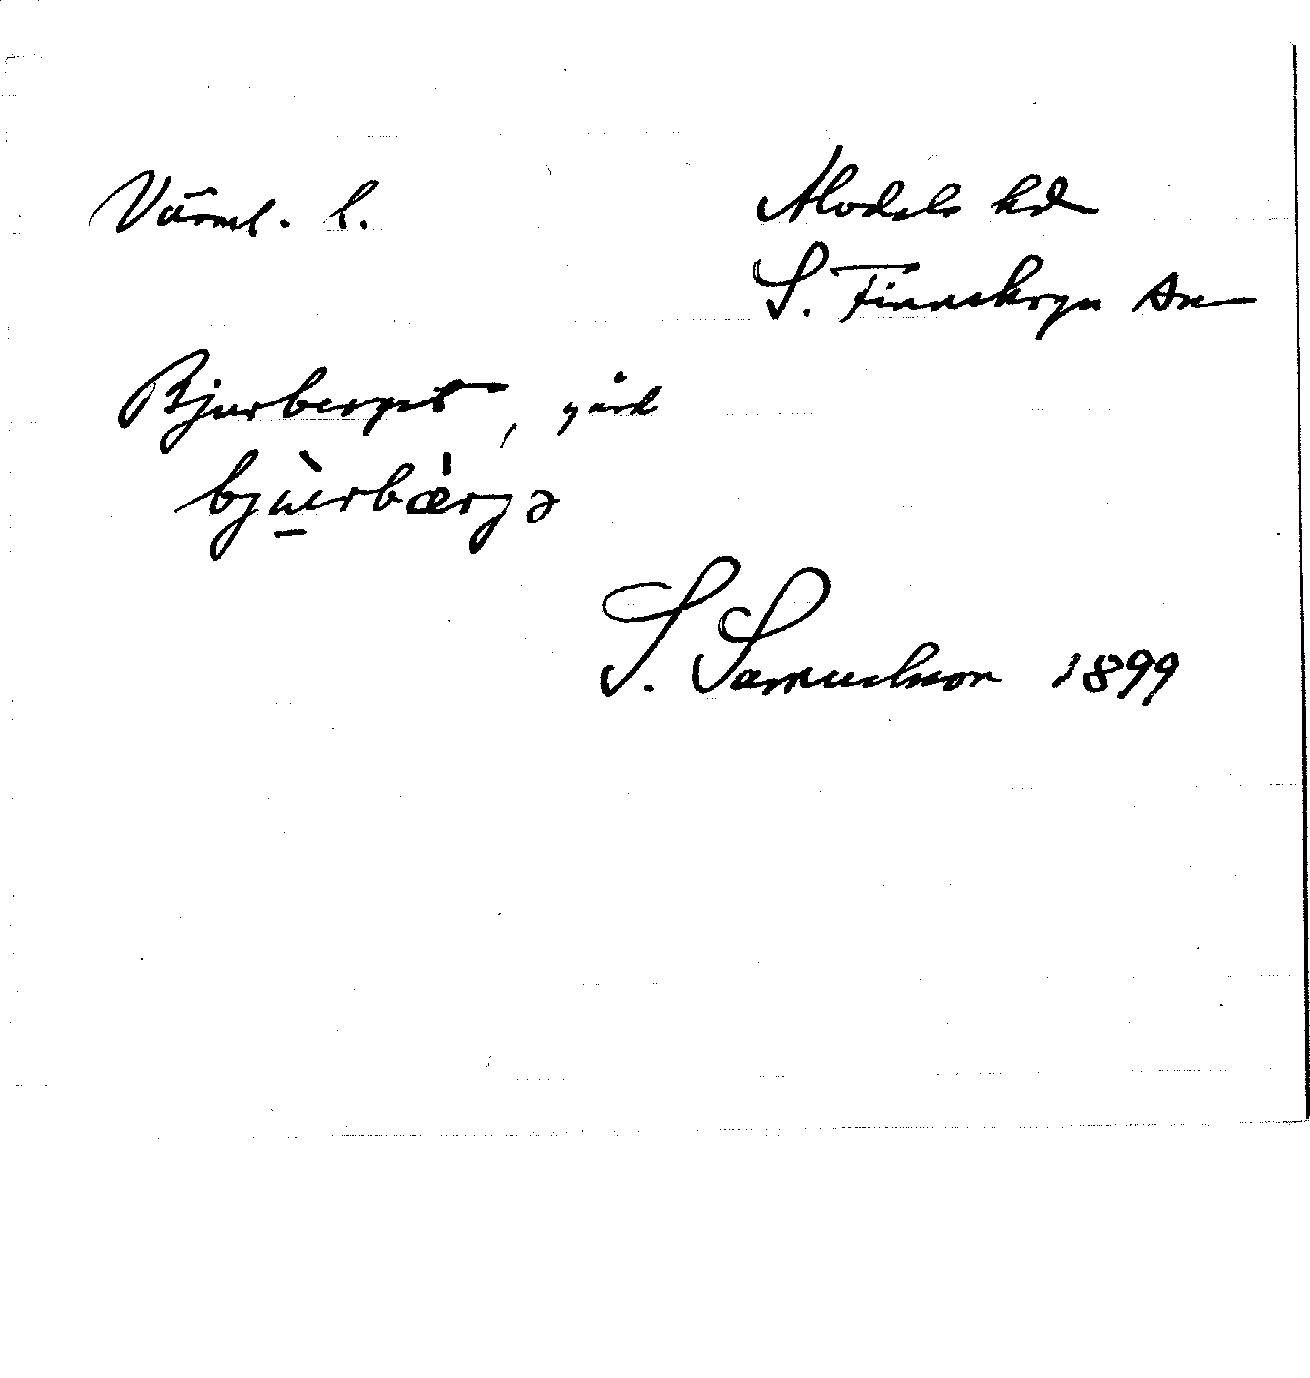 Värml. l.
Älvdals hd
S. Finnskoga sn
Bjurberget, gård
bjùrbærjə
S. Samuelsson 1899